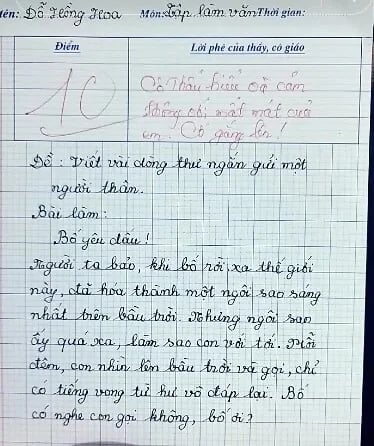 tên: Đỗ Hồng Hoa Môn: Tập làm văn Thời gian:
Điểm Lời phê của thầy, cô giáo
10
Cô thấu hiểu và cảm
thông với mất mát của
em. Cố gắng lên!
Đề: Viết vài dòng thư ngắn gửi một
người thân.
Bài làm:
Bố yêu dấu!
Người ta bảo, khi bố rời xa thế giới
này, đã hóa thành một ngôi sao sáng
nhất trên bầu trời. Nhưng ngôi sao
ấy quá xa, làm sao con với tới. Mỗi
đêm, con nhìn lên bầu trời và gọi, chỉ
có tiếng vang từ hư vô đáp lại. Bố
có nghe con gọi không, bố ơi?